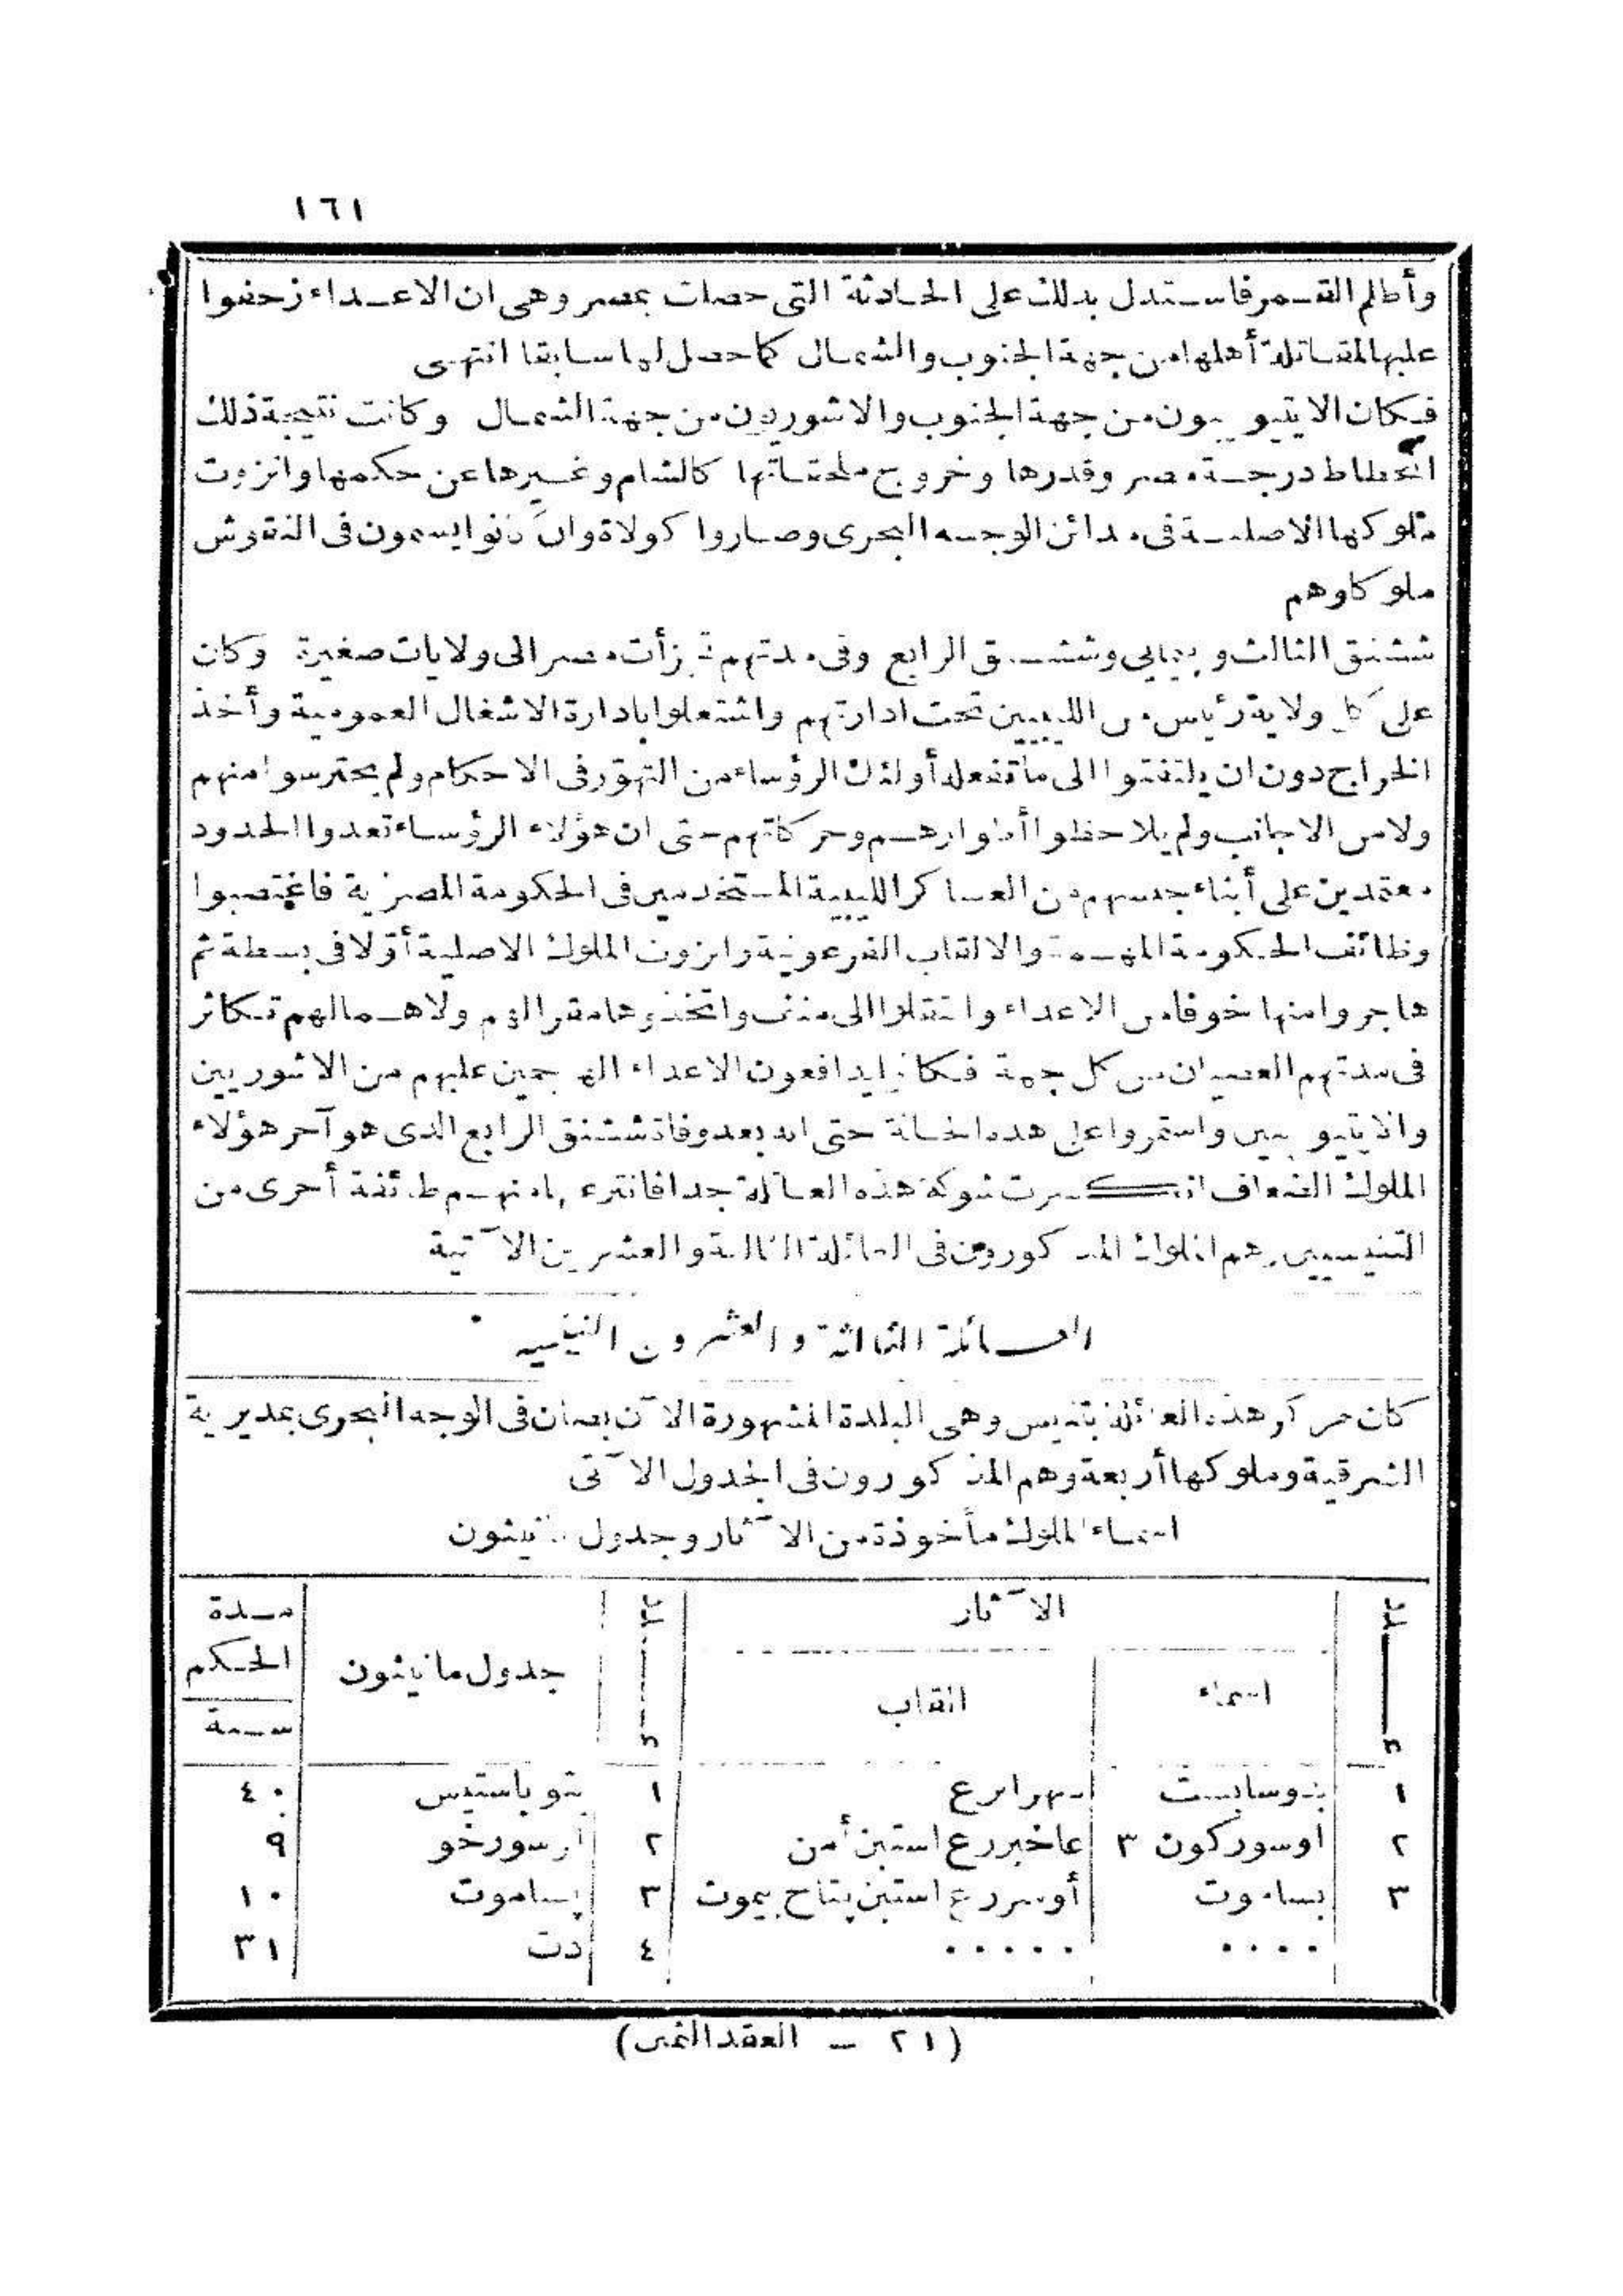 ١٦١
وأظلم القمر فاستدل بذلك على الحادثة التى حصلت بمصر وهى ان الاعداء زحفوا
عليها لمقاتلة أهلها من جهة الجنوب والشمال كما حصل لها سابقا انتهى
فكان الايتيوبيون من جهة الجنوب والاشوريون من جهة الشمال وكانت نتيجة ذلك
انحطاط درجة مصر وقدرها وخروج ملحقاتها كالشام وغيرها عن حكمها وانزوت
ملوكها الاصلية فى مدائن الوجه البحرى وصاروا كولاة وان كانوا يسمون فى النقوش
ملوكا وهم
ششنق الثالث وبيمايى وششنق الرابع وفى مدتهم تجزأت مصر الى ولايات صغيرة وكان
على كل ولاية رئيس من الليبيين تحت ادارتهم واشتغلوا بادارة الاشغال العمومية وأخذ
الخراج دون ان يلتفتوا الى ما تفعله أولئك الرؤساء من التهور فى الاحكام ولم يحترسوا منهم
ولا من الاجانب ولم يلاحظوا أطوارهم وحركاتهم حتى ان هؤلاء الرؤساء تعدوا الحدود
معتمدين على أبناء جنسهم من العساكر الليبية المستخدمين فى الحكومة المصرية فاغتصبوا
وظائف الحكومة المهمة والالقاب الفرعونية وانزوت الملوك الاصلية أولا فى بسطة ثم
هاجروا منها خوفا من الاعداء وانتقلوا الى منف واتخذوها مقرا لهم ولاهمالهم تكاثر
فى مدتهم العصيان من كل جهة فكانوا يدافعون الاعداء المهاجمين عليهم من الاشوريين
والايتيوبيين واستمروا على هذه الحالة حتى انه بعد وفاة ششنق الرابع الذى هو آخر هؤلاء
الملوك الضعاف انكسرت شوكة هذه العائلة جدا فانتزعها منهم طائفة أخرى من
التنيسيين وهم الملوك المذكورون فى العائلة الثالثة والعشرين الآتية
العائلة الثالثة والعشرون التنيسية
كان مركز هذه العائلة بتنيس وهى البلدة المشهورة الآن بصان فى الوجه البحرى بمديرية
الشرقية وملوكها أربعة وهم المذكورون فى الجدول الآتى
اسماء الملوك مأخوذة من الآثار وجدول مانيثون
عدد الآثار عدد جدول مانيثون مدة الحكم
اسماء القاب سنة
١ بدوسابست سهرابرع ١ بتوباستيس ٤٠
٢ اوسوركون ٣ عاخبررع استبن أمن ٢ اوسورخو ٩
٣ بساموت أوسررع استبن پتاح بيموت ٣ پساموت ١٠
.... ..... ٤ زت ٣١
(٢١ - العقد الثمين)